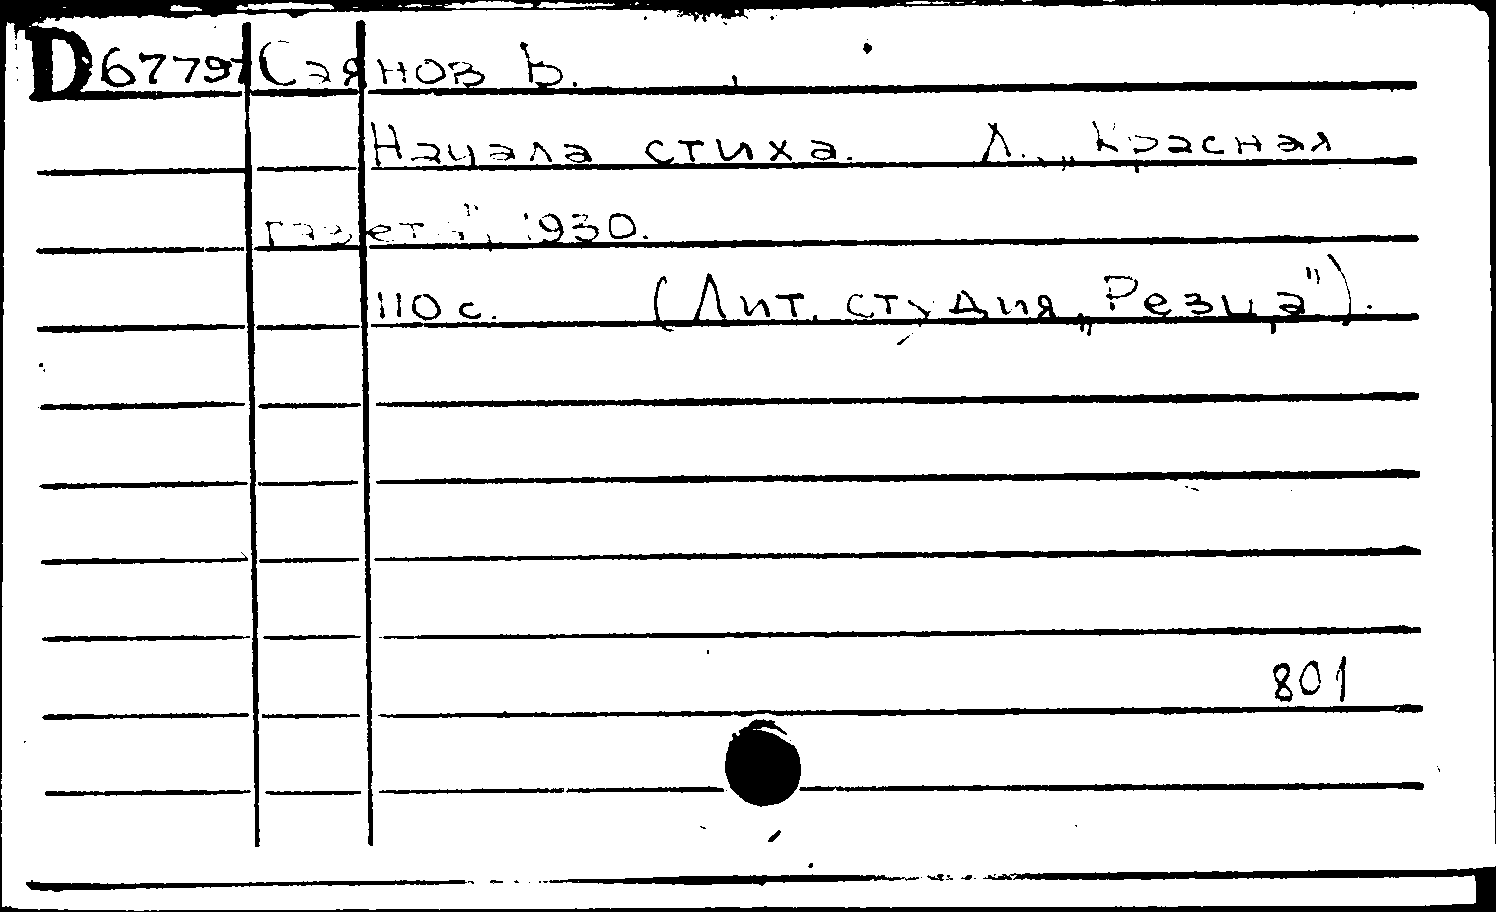 D67797 Саянов В.
Начала стиха. Л., „Красная
газета", 1930.
110 с. (Лит. студия „Резца").
801